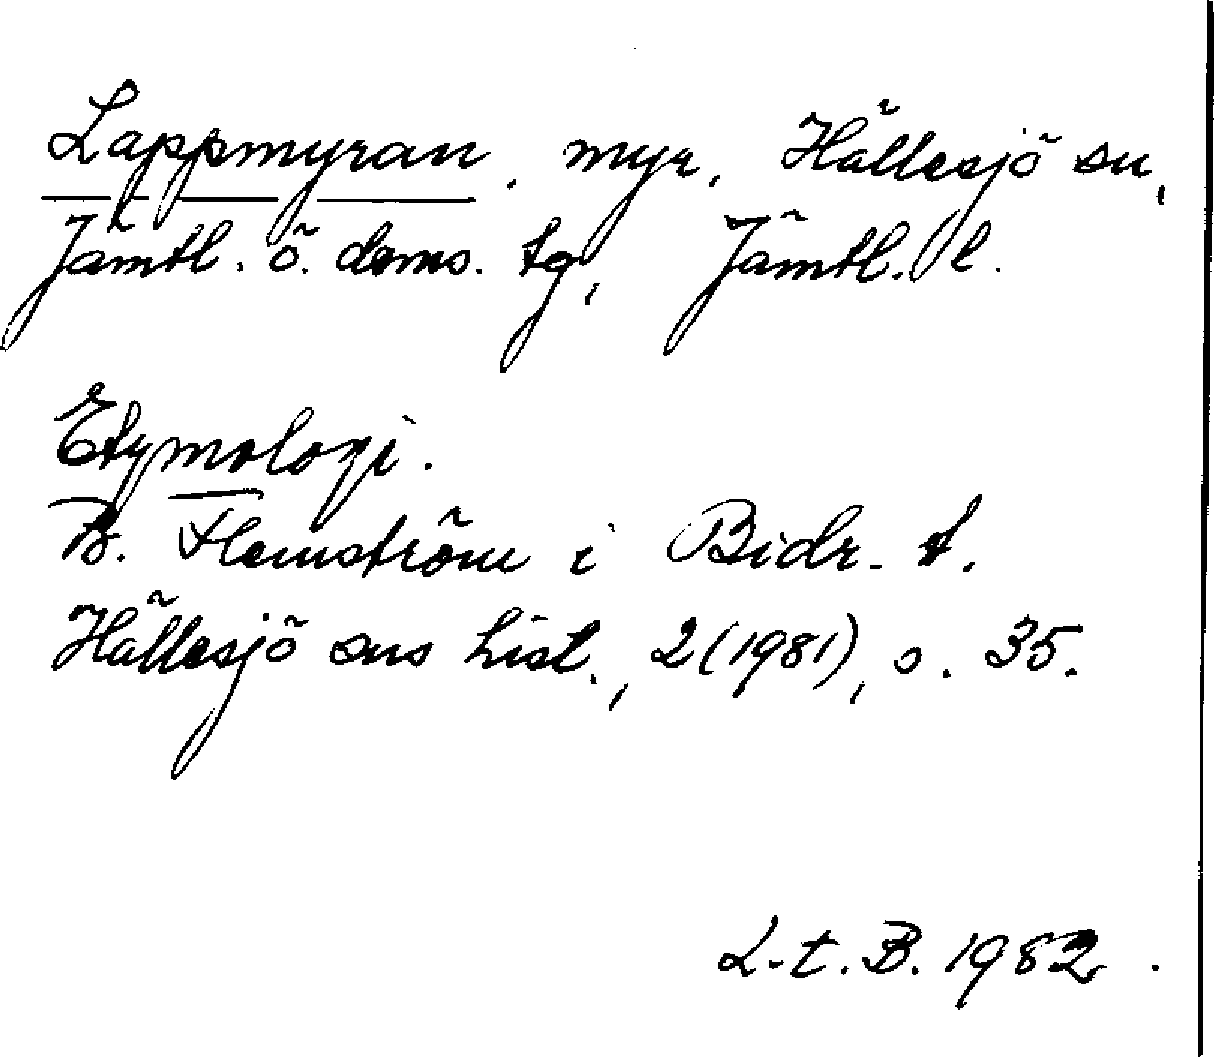 Lappmyran, myr, Hällesjö sn,
Jämtl. ö. doms. tg, Jämtl. l.
Etymologi.
B. Flemström i Bidr. t.
Hällesjö sns hist., 2 (1981), s. 35.
L-t. B. 1982.